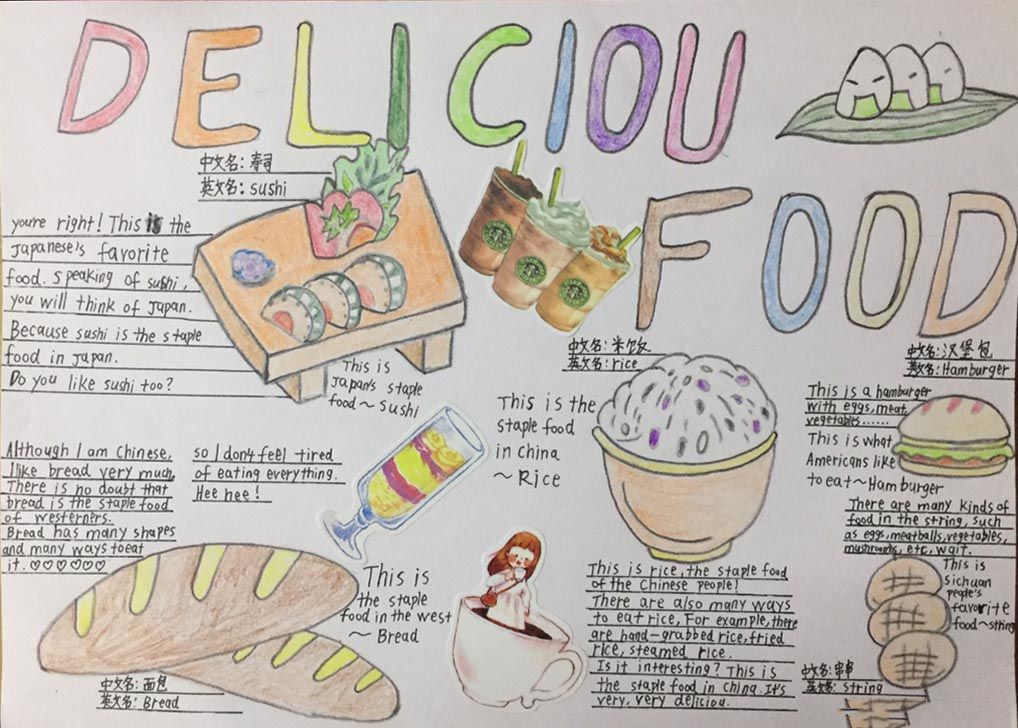 DELICIOU
FOOD
中文名: 寿司
英文名: sushi
you're right! This is the
Japanese's favorite
food. Speaking of sushi,
you will think of Japan.
Because sushi is the staple
food in Japan.
Do you like sushi too?
This is
Japan's staple
food~ Sushi
中文名: 米饭
英文名: rice
This is the
staple food
in china
~ Rice
中文名: 汉堡包
英文名: Hamburger
This is a hamburger
with eggs, meat,
vegetables......
This is what
Americans like
to eat~ Hamburger
Although I am Chinese,
I like bread very much,
There is no doubt that
bread is the staple food
of westerners.
Bread has many shapes
and many ways to eat
it. ♡♡♡♡♡♡
so I don't feel tired
of eating everything.
Hee hee!
This is
the staple
food in the west
~ Bread
中文名: 面包
英文名: Bread
This is rice, the staple food
of the Chinese people!
There are also many ways
to eat rice, For example, there
are hand-grabbed rice, fried
rice, steamed rice.
Is it interesting? This is
the staple food in china. It's
very, very deliciou.
There are many kinds of
food in the string, such
as eggs, meatballs, vegetables,
mushrooms, etc, wait.
This is
sichuan
people's
favorite
food~string
中文名: 串串
英文名: string